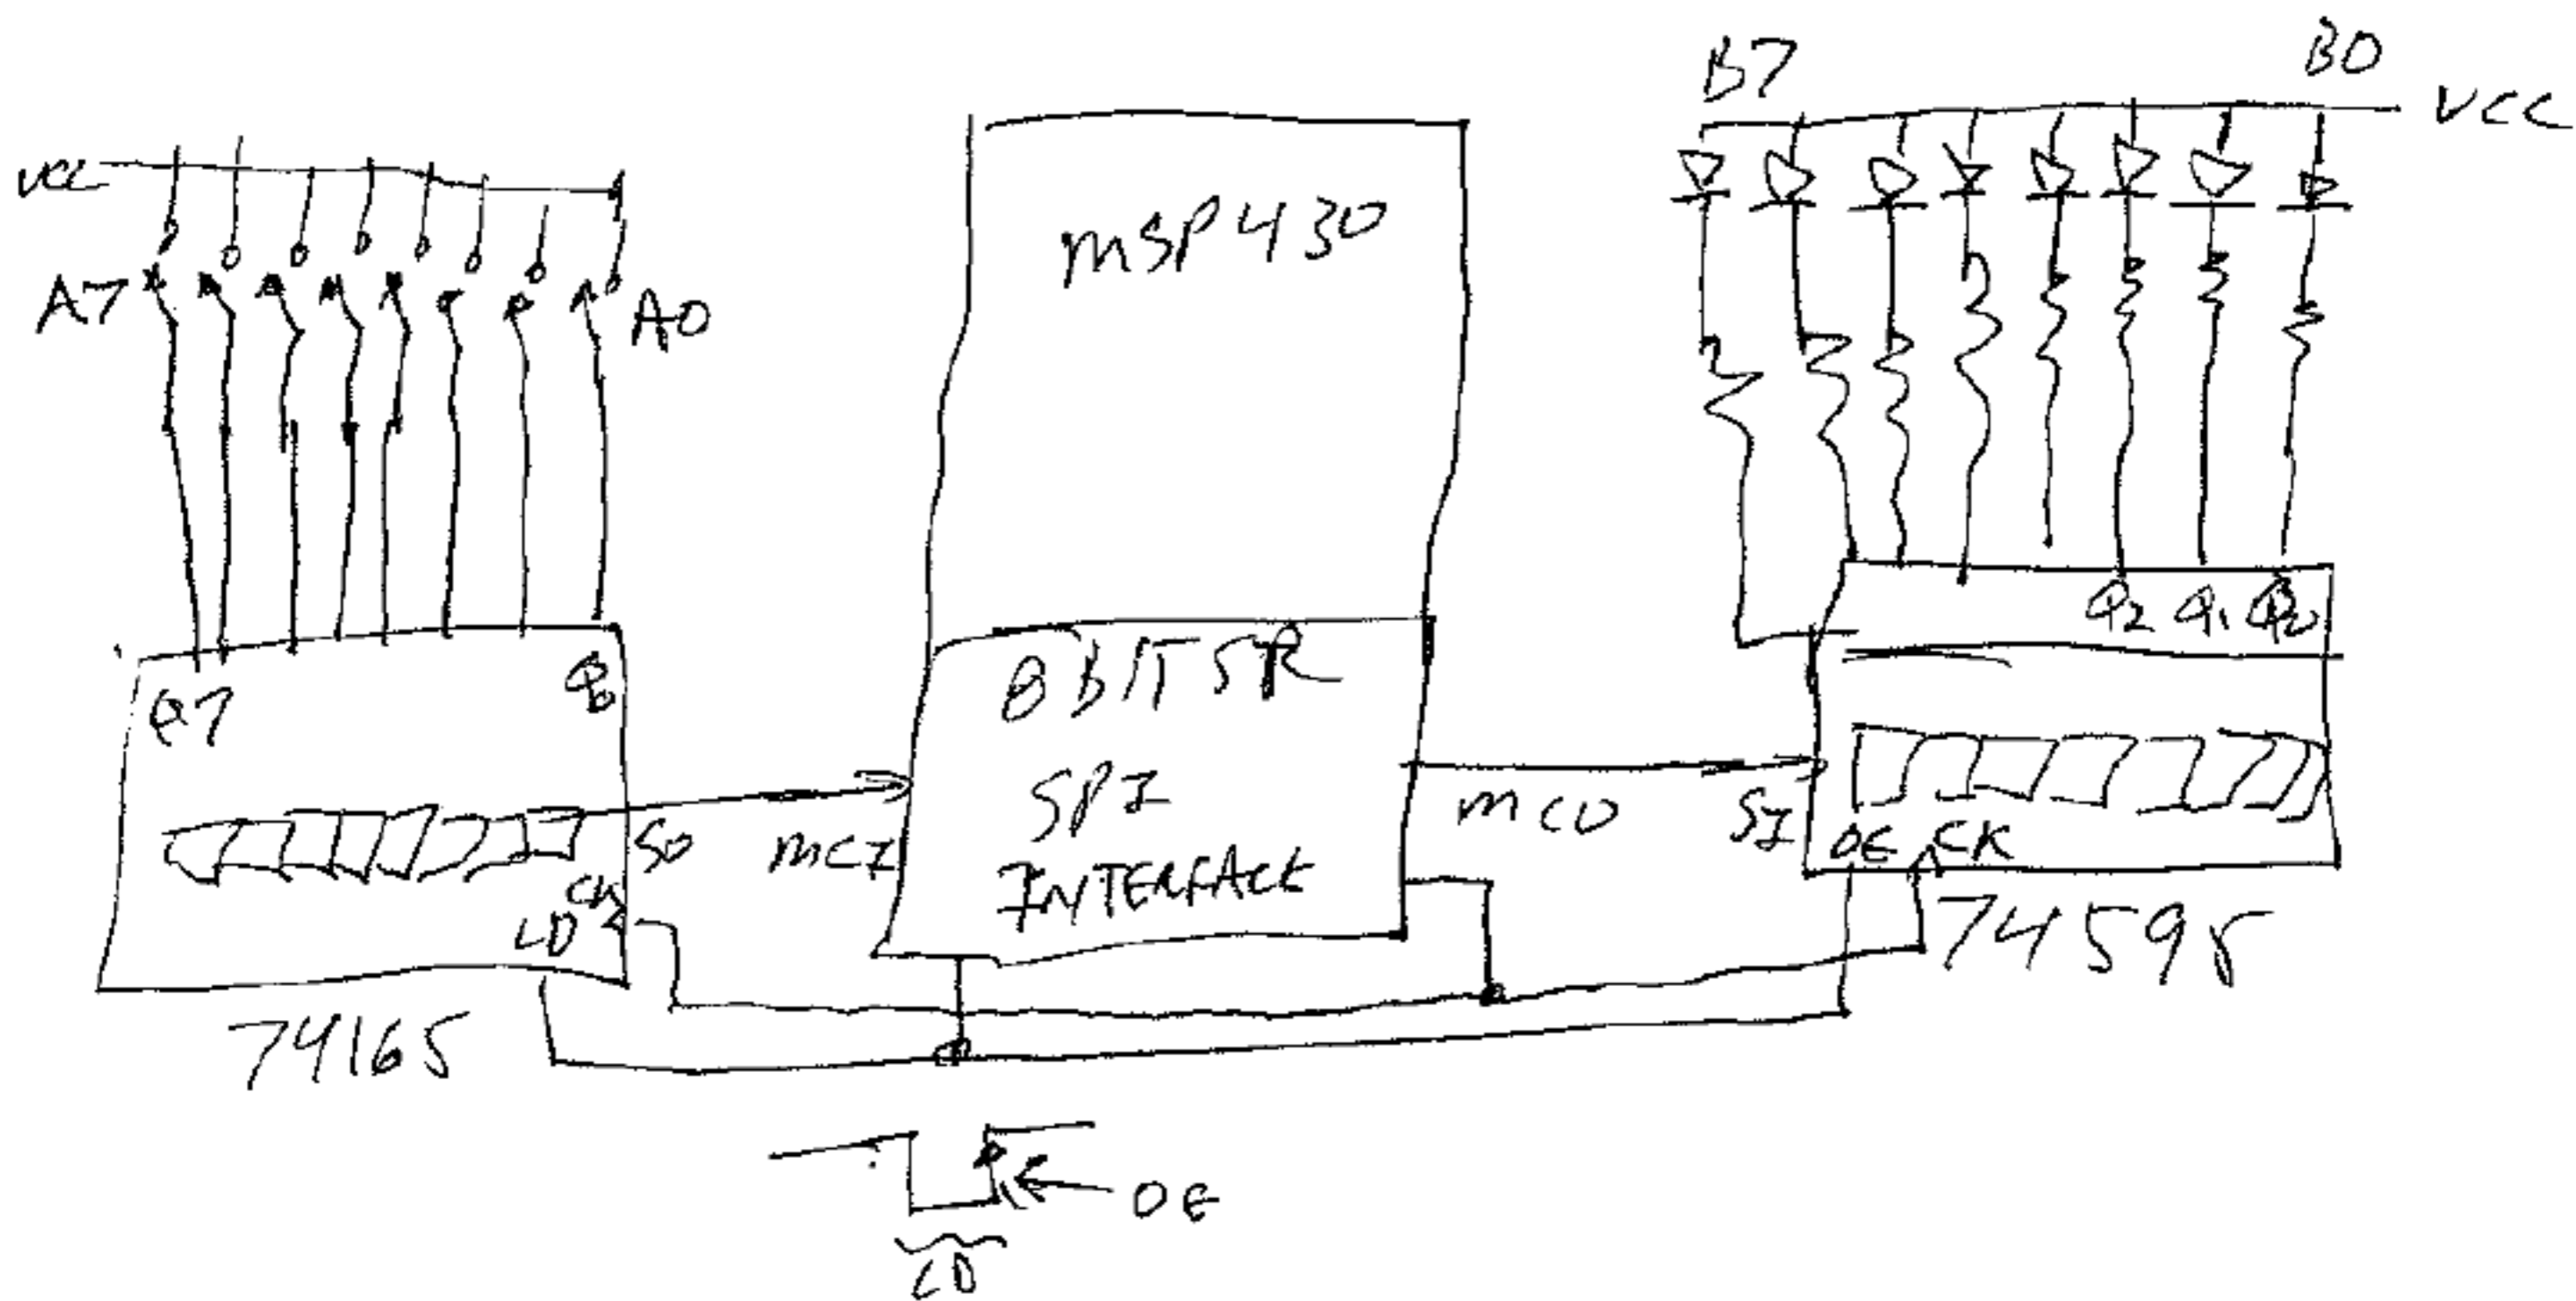 B7 B0
VCC
VCC
MSP430
A7 A0
Q2 Q1 Q0
Q7 Q0
8 BIT SR
SPI
INTERFACE
SO MCI
MCO SI
OE CK
CK
LD
74595
74165
OE
LD